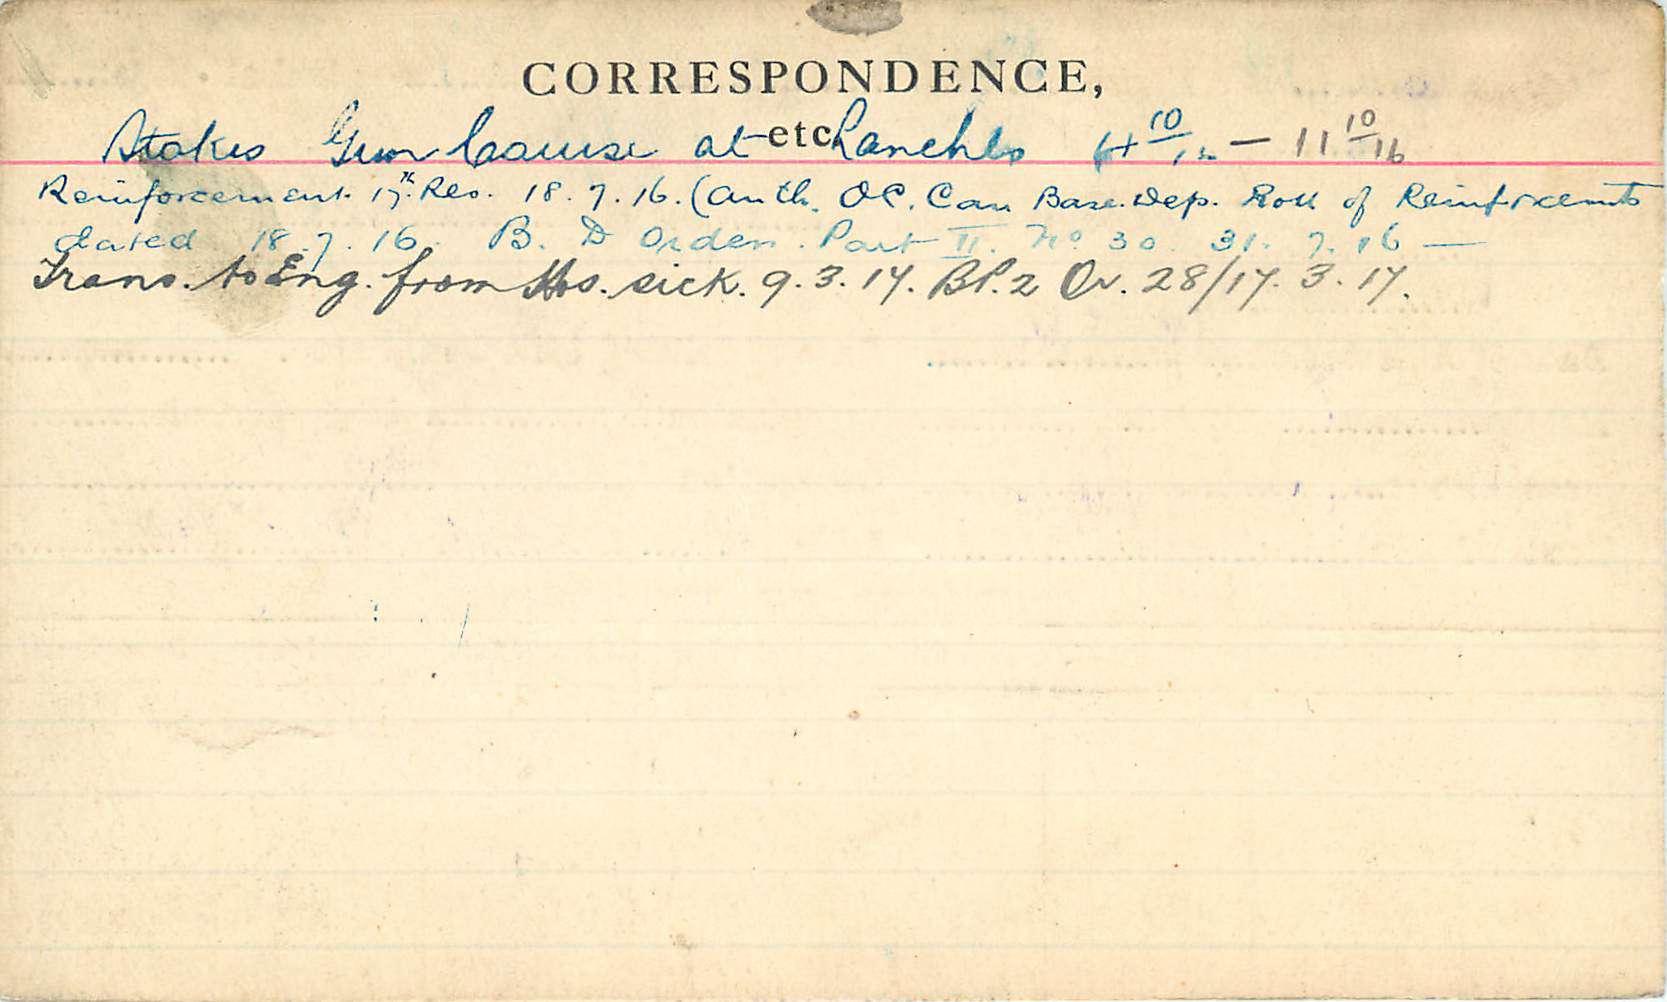 CORRESPONDENCE,
etc.
Stokes Gun Course at 4 10/16 — 11 10/16
Reinforcement 17th Res. 18.7.16. (Auth. OC. Can Base Dep. Roll of Reinforcements
dated 18.7.16. B. D Orders. Part II. No 30. 31.7.16 —
Trans. to Eng. from sick. 9.3.17. Pt.2 Or. 28/17. 3.17.